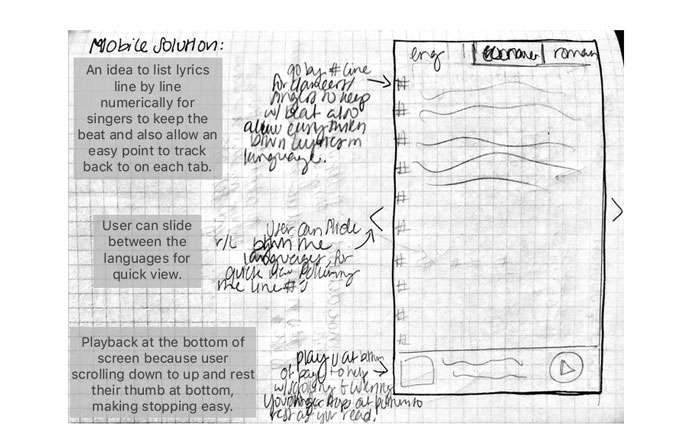 Mobile Solution:
An idea to list lyrics
line by line
numerically for
singers to keep the
beat and also allow an
easy point to track
back to on each tab.
go by # line
for dancers/
singers to keep
w/ beat also
allow
btwn lyrics in
language.
eng
roman
#
#
#
#
#
#
#
#
#
#
User can slide
between the
languages for
quick view.
user can slide
r/L btwn the
languages for
quick view
the line #'s
<
>
Playback at the bottom of
screen because user
scrolling down to up and rest
their thumb at bottom,
making stopping easy.
play at
of page to help
w/ scrolling
at
rest as you read.